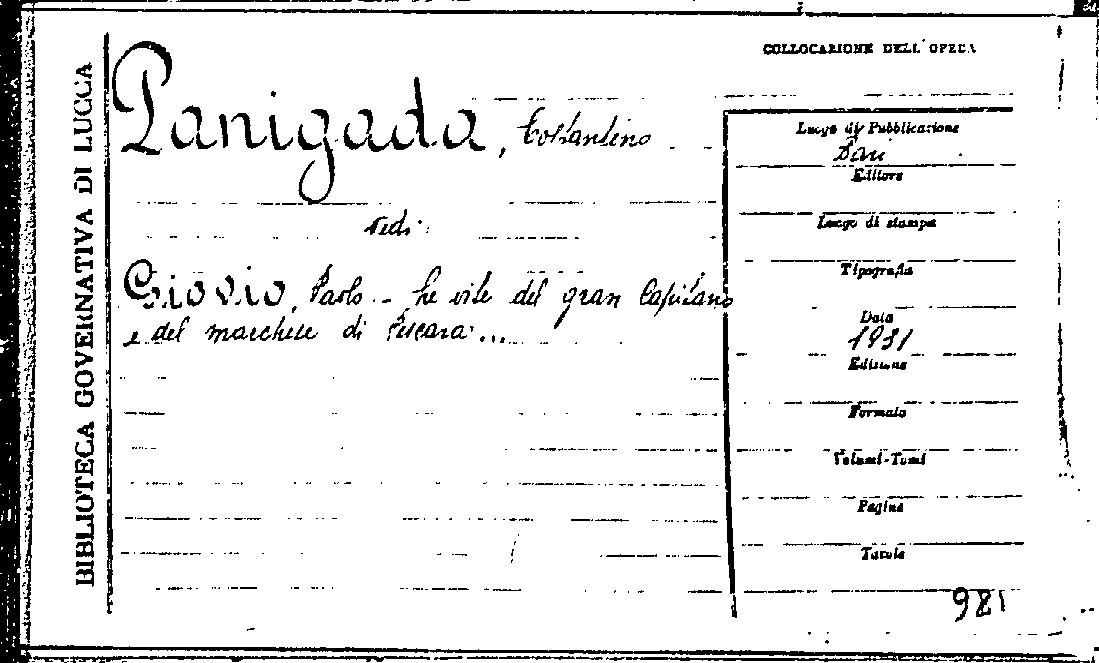 BIBLIOTECA GOVERNATIVA DI LUCCA
COLLOCAZIONE DELL'OPERA
Panigada, Costantino
Vedi:
Giovio, Paolo - Le vite del gran Capitano
e del marchese di Pescara...
Luogo di Pubblicazione
Bari
Editore
Luogo di stampa
Tipografia
Data
1931
Edizione
Formato
Volumi-Tomi
Pagine
Tavole
981